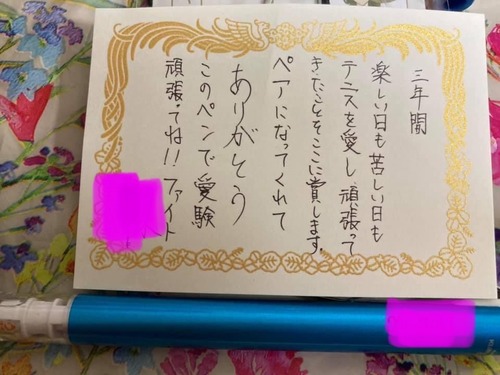 三年間
楽しい日も苦しい日も
テニスを愛し頑張って
きたことをここに賞します。
ペアになってくれて
ありがとう
このペンで受験
頑張ってね!!ファイト